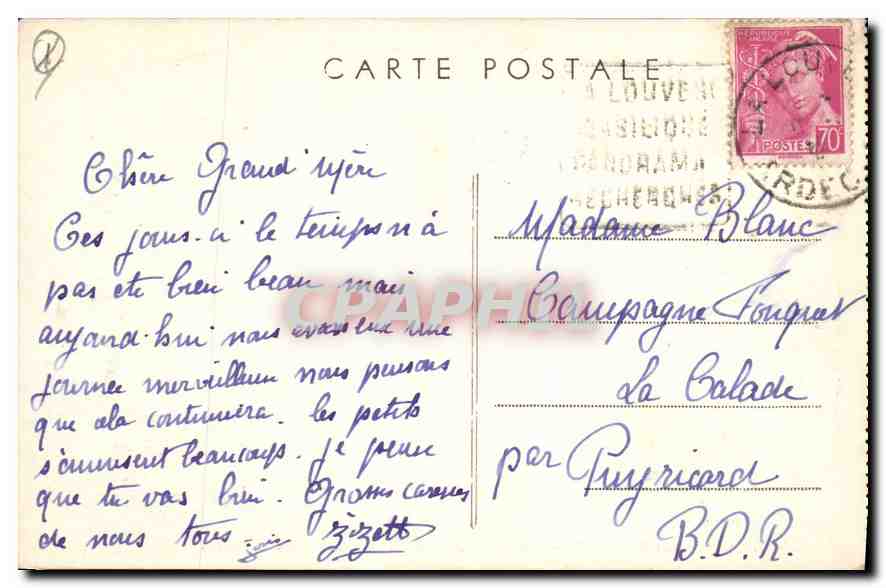 CARTE POSTALE
LA LOUVE
BASILIQUE
PANORAMA
RECHERCHES
RÉPUBLIQUE
FRANÇAISE
POSTES 70c
LA LOUV
ARDEC
Chère Grand'Mère
Ces jours-ci le temps n'a
pas été bien beau mais
aujourd'hui nous avons eu une
journée merveilleuse nous pensons
que cela continuera. les petits
s'amusent beaucoup. je pense
que tu vas bien. Grosses caresses
de nous tous Zizett
Madame Blanc
Campagne Fouquet
La Calade
par Puyricard
B.D.R.
CPAPHIL